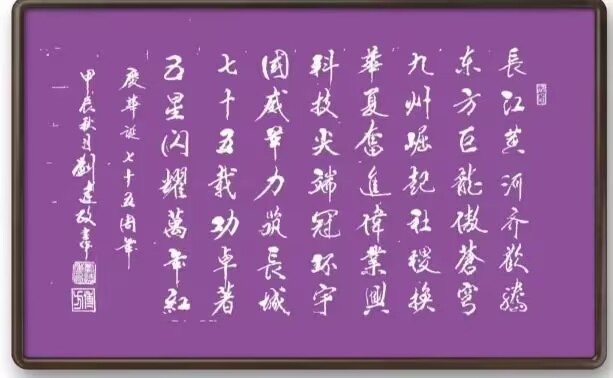 長江黄河齐欢腾
东方巨龍傲蒼穹
九州崛起社稷换
華夏奮進偉業興
科技尖端冠环宇
國威軍力筑長城
七十五载功卓著
五星闪耀萬年紅
慶華诞七十五周年
甲辰秋月劉建